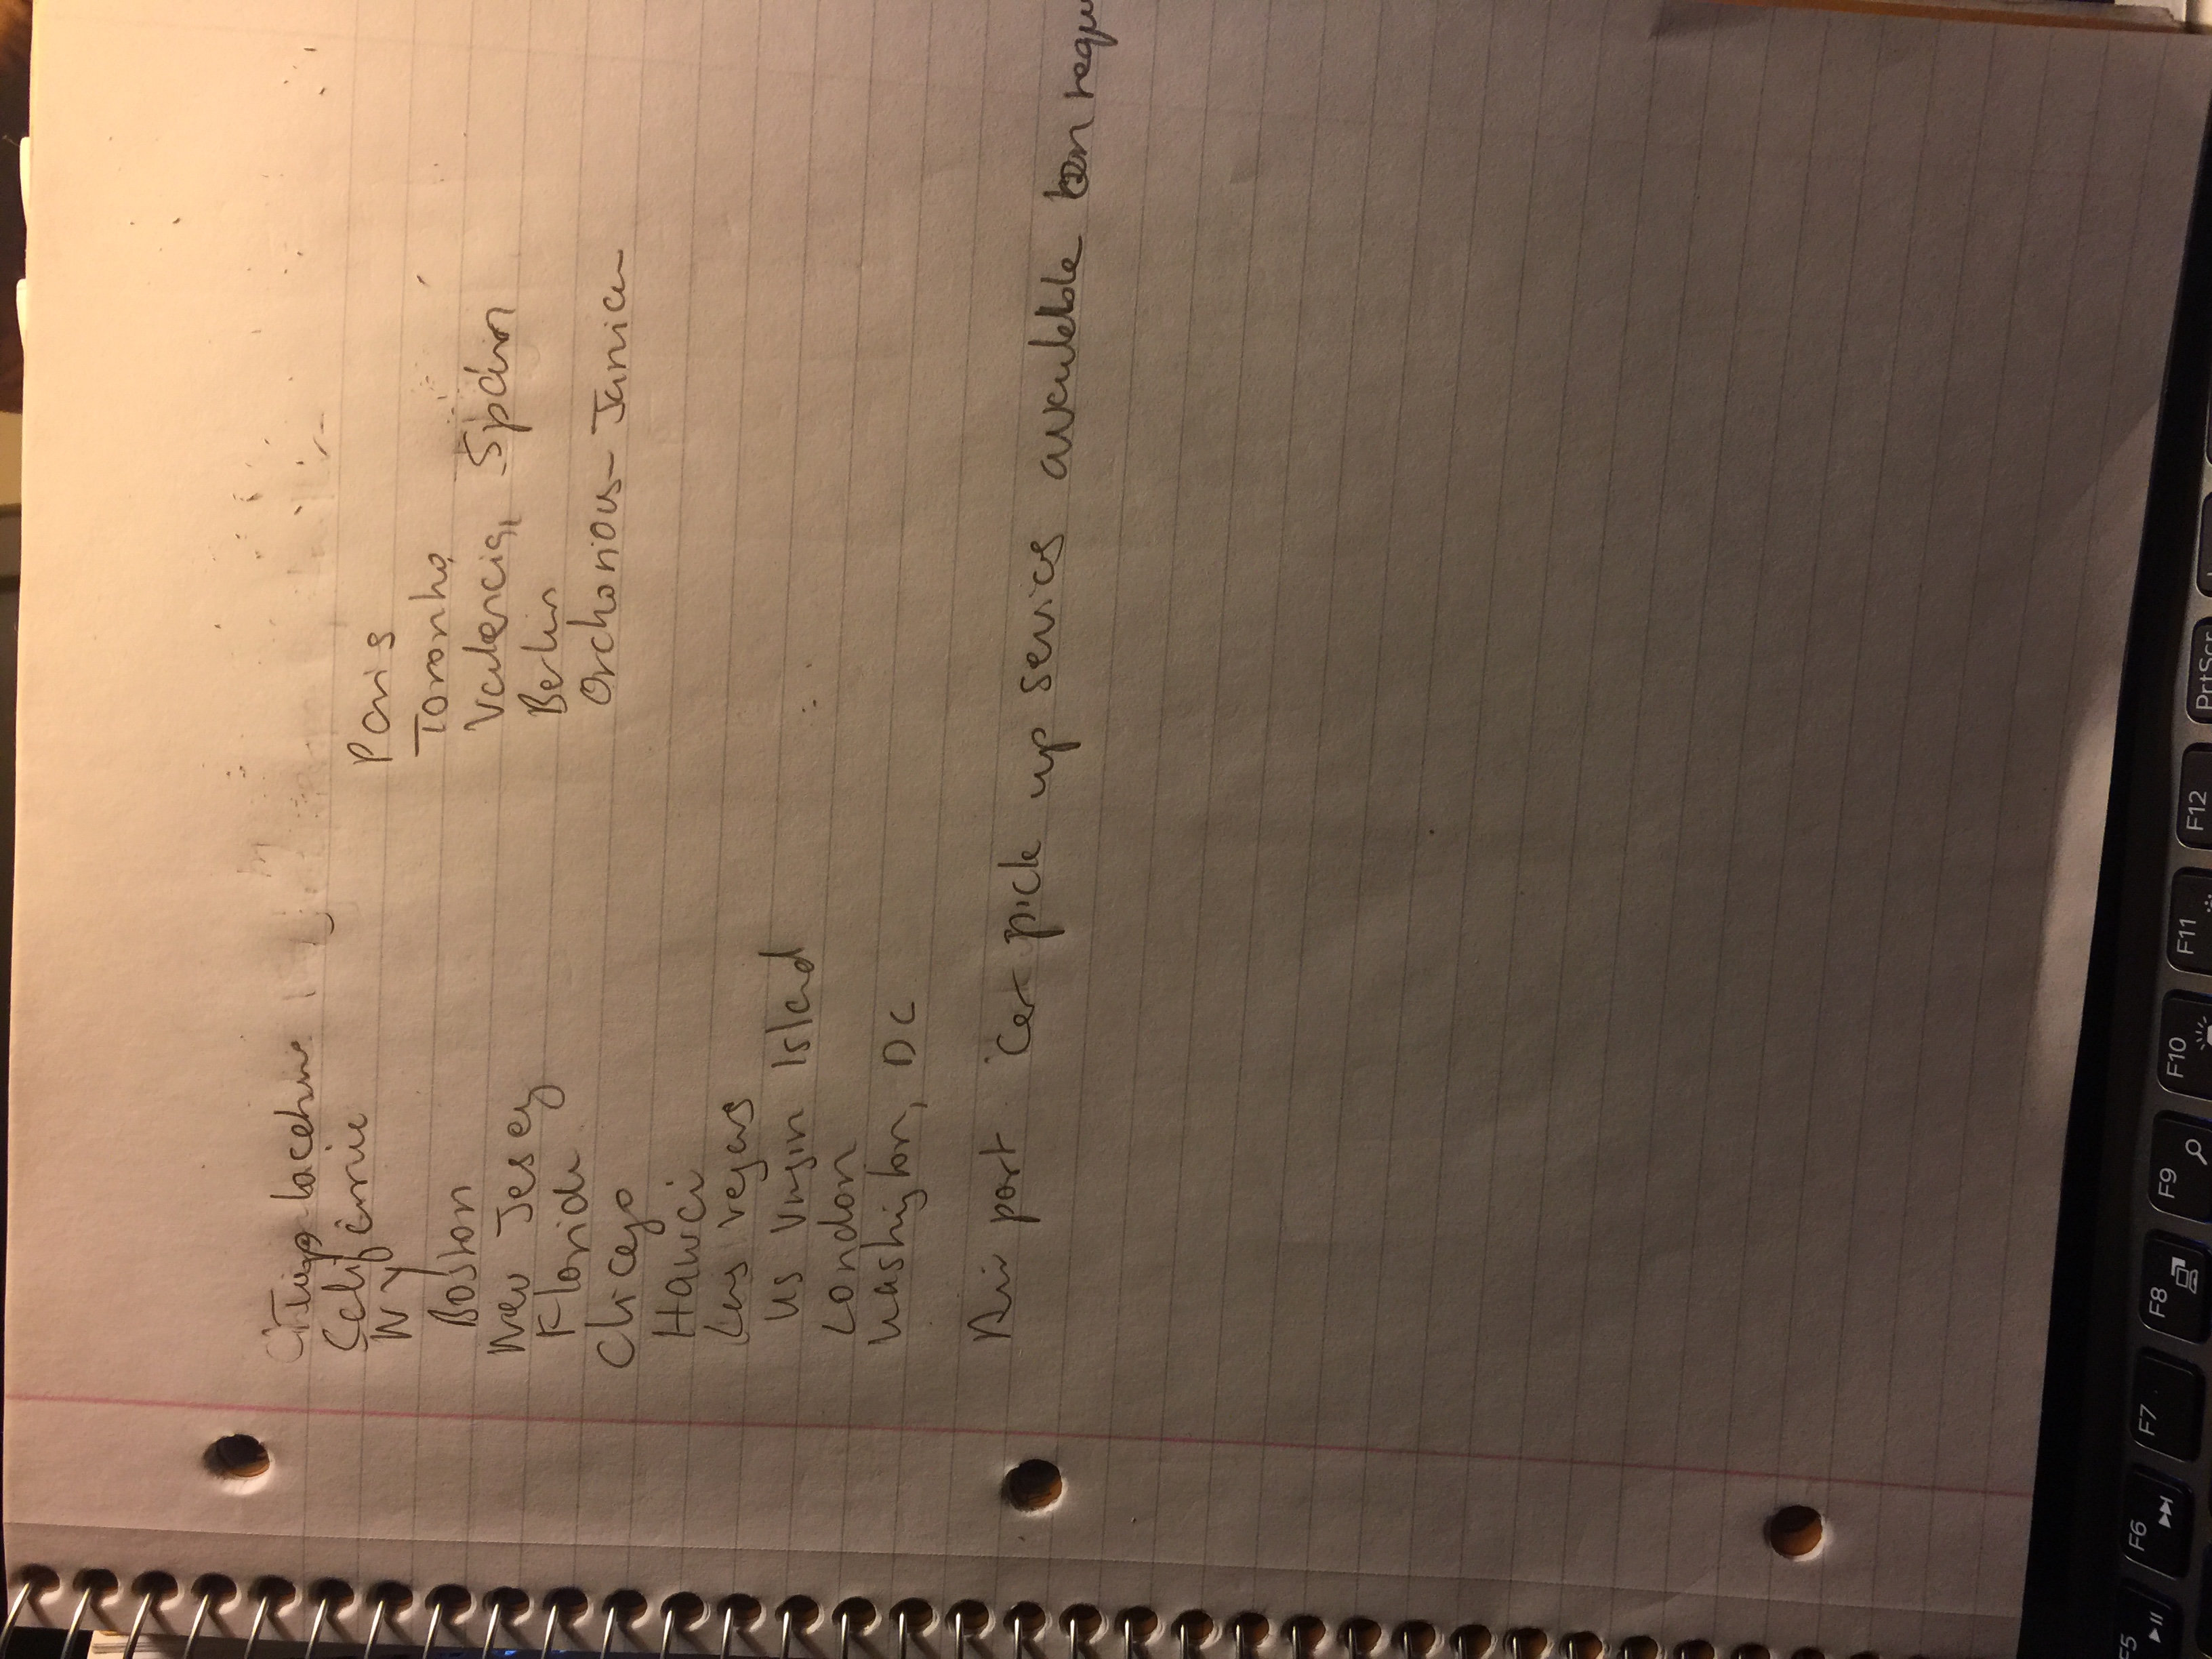 California
NY
Boston
New Jesey
Florida
Chicago
Hawai
Las Vegas
US Virgin Island
London
Washigton, DC
Paris
Toronto
Valencia, Spain
Berlin
Air port Car pick up sevices available on requ
F5
F6
F7
F8
F9
F10
F11
F12
PrtScr